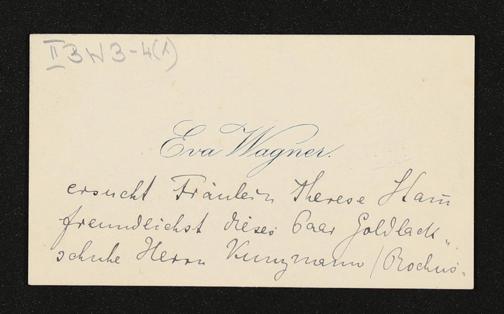 II BW 3-4(1)
Eva Wagner.
ersucht Fräulein Therese Ham̄
freundlichst dieses Paar Goldlack„
schuhe Herrn Kunzmann / Rochus„